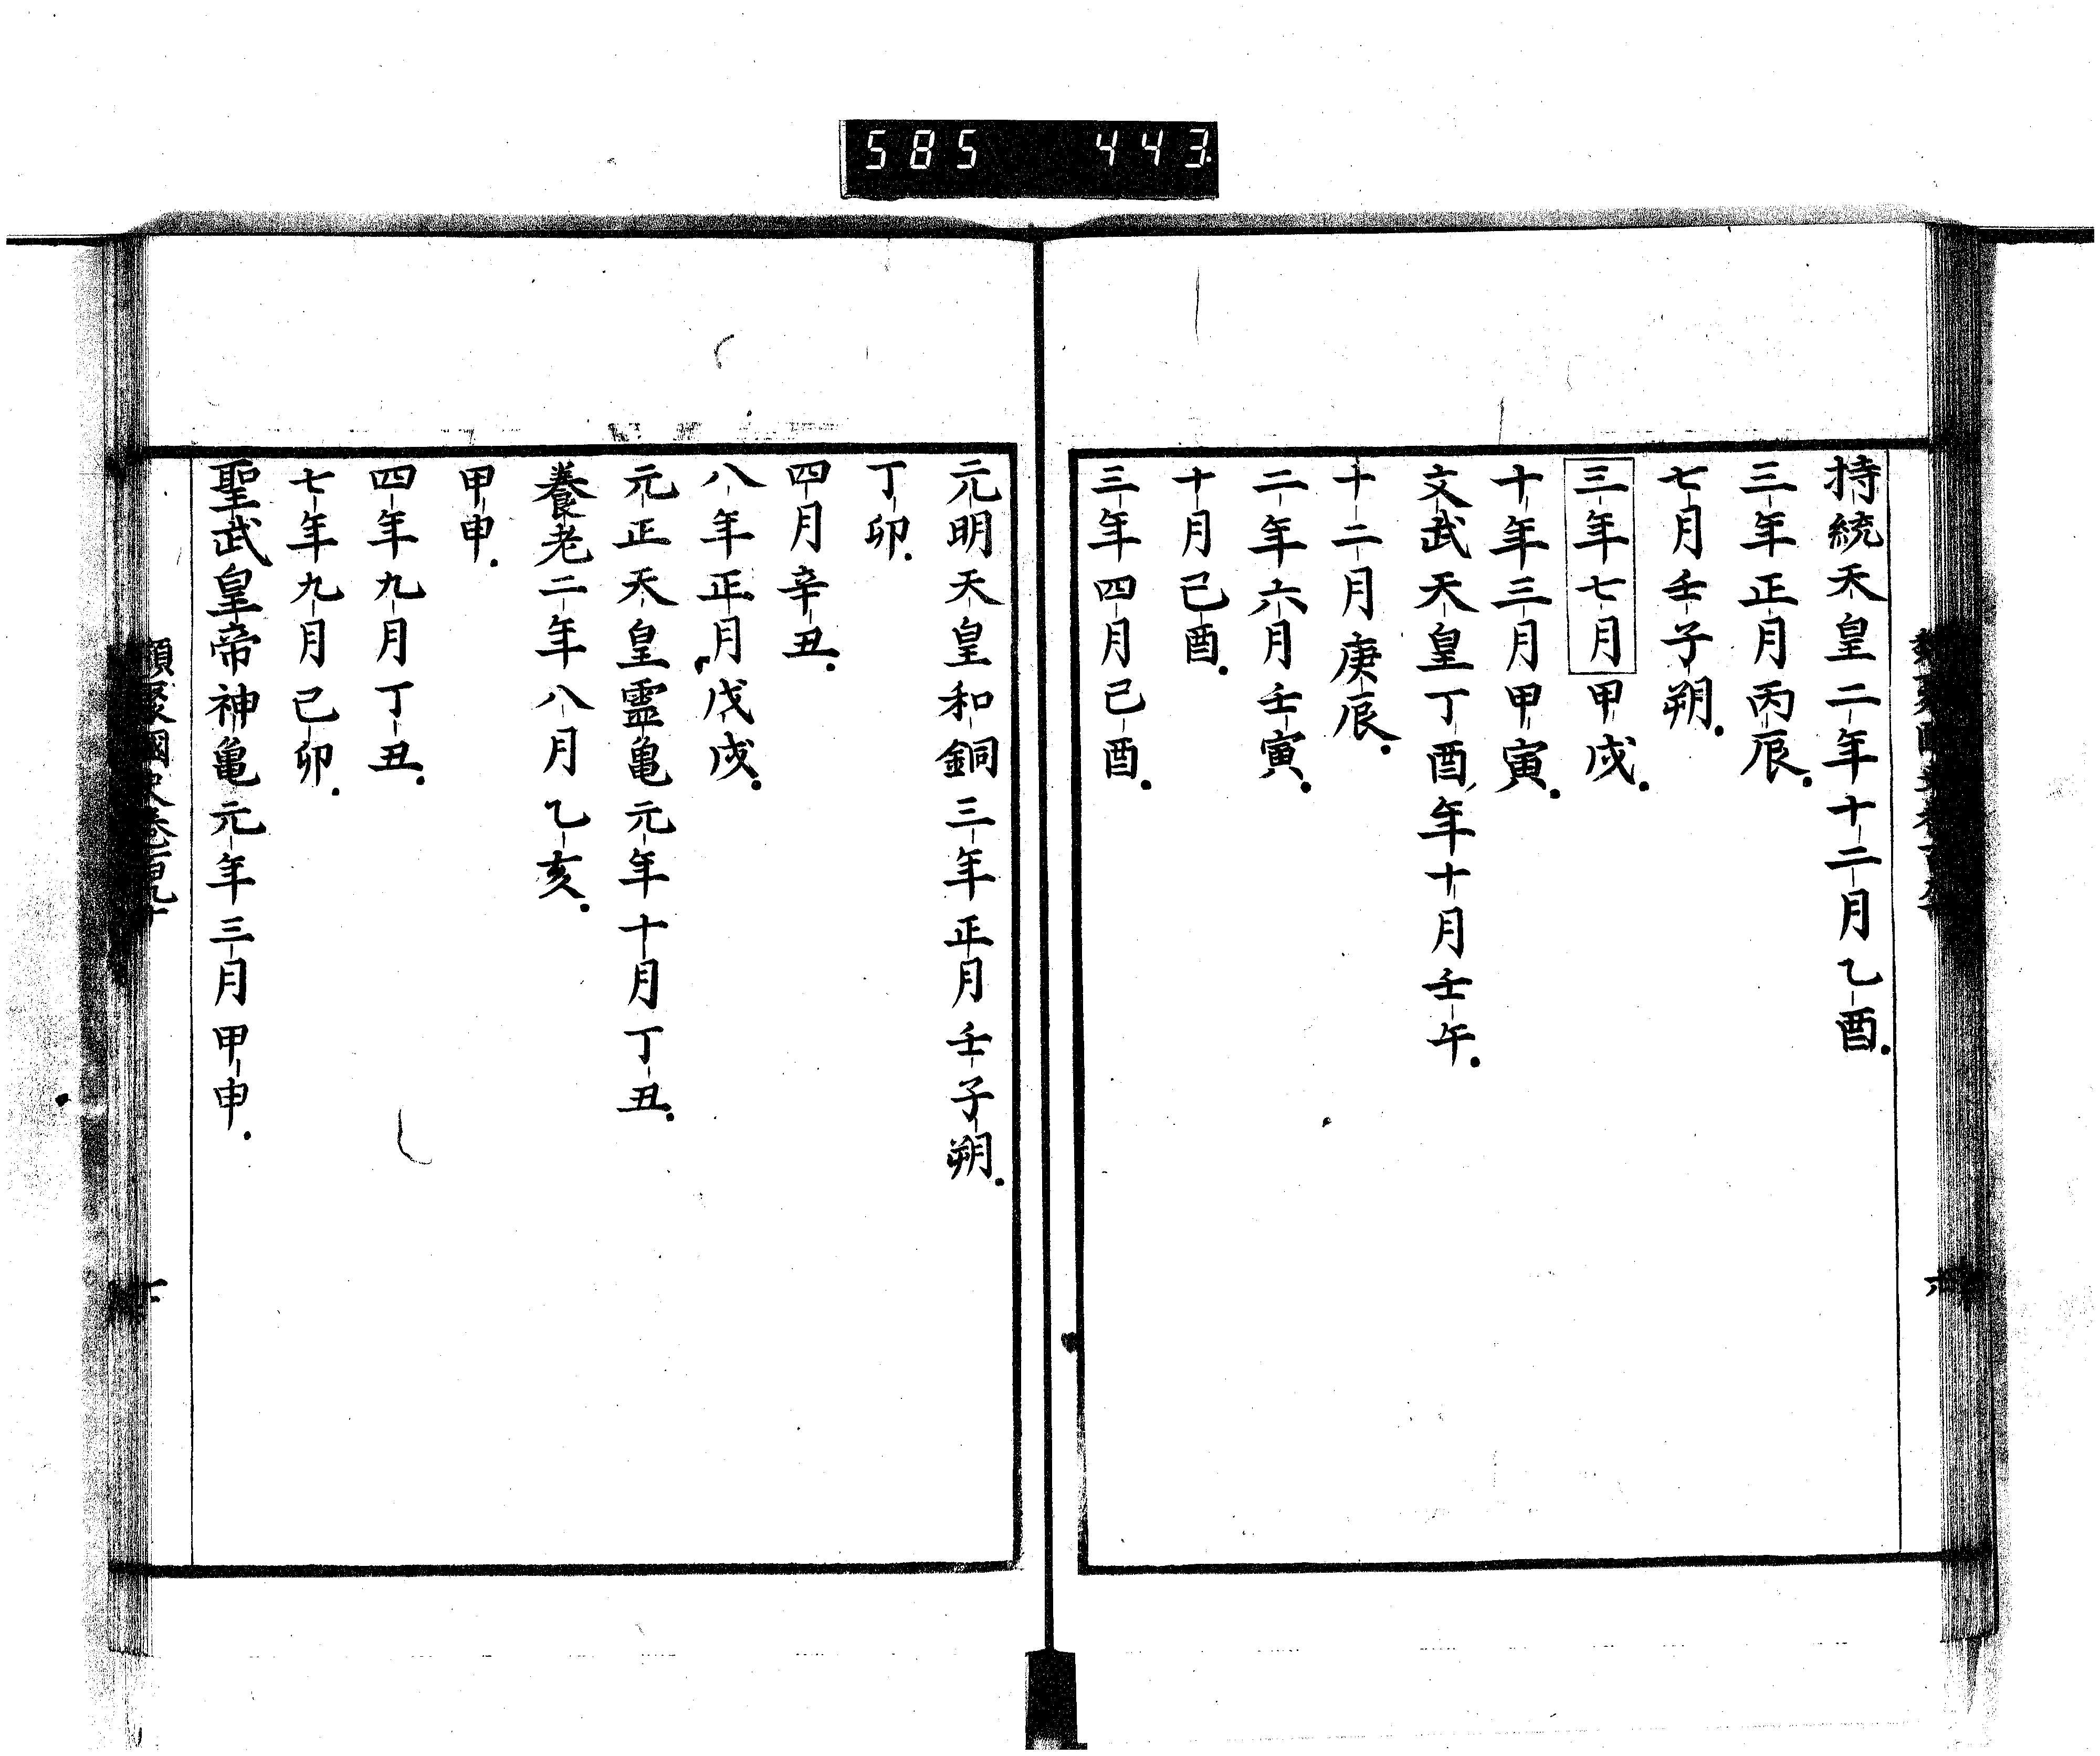 585 443
持統天皇二年十二月乙酉.
三年正月丙辰.
七月壬子朔.
三年七月甲戌.
十年三月甲寅.
文武天皇丁酉年十月壬午.
十二月庚辰.
二年六月壬寅.
十月己酉.
三年四月己酉.
元明天皇和銅三年正月壬子朔.
丁卯.
四月辛丑.
八年正月戊戌.
元正天皇霊亀元年十月丁丑.
養老二年八月乙亥.
甲申.
四年九月丁丑.
七年九月己卯.
聖武皇帝神亀元年三月甲申.
類聚國史卷百九十